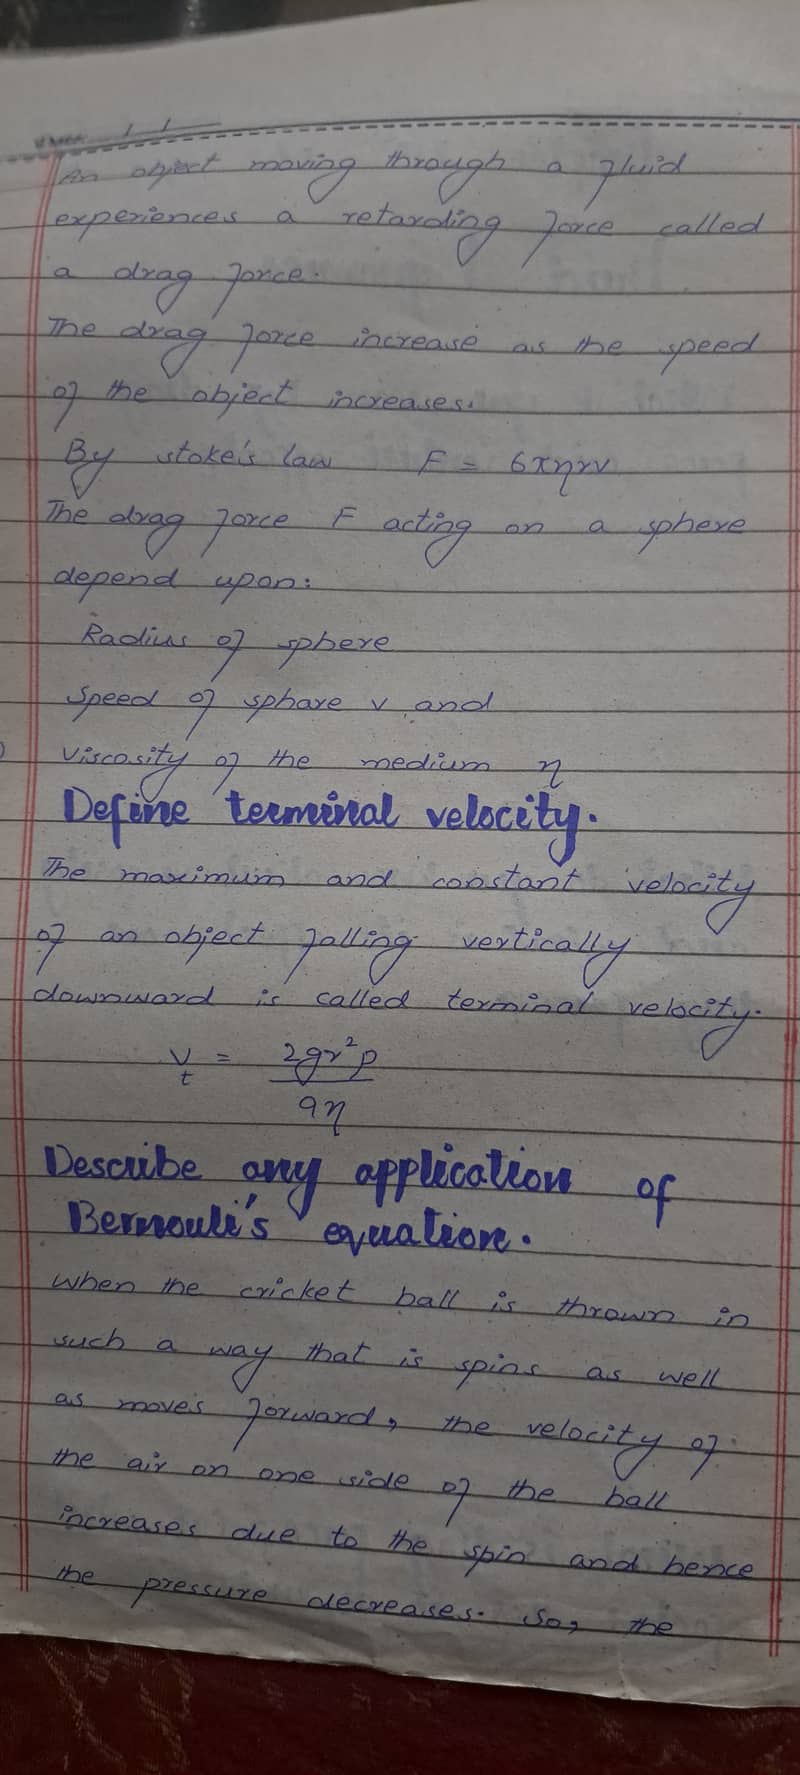 An object moving through a fluid
experiences a retarding force called
a drag force.
The drag force increase as the speed
of the object increases.
By stoke's law F = 6πηrv
The drag force F acting on a sphere
depend upon:
Radius of sphere
Speed of sphare v and
)
viscosity of the medium η
Define terminal velocity.
The maximum and constant velocity
of an object falling vertically
downward is called terminal velocity.
v_t = 2gr²ρ / 9η
Describe any application of
Bernouli's equation.
When the cricket ball is thrown in
such a way that is spins as well
as moves forward, the velocity of
the air on one side of the ball
increases due to the spin and hence
the pressure decreases. So, the